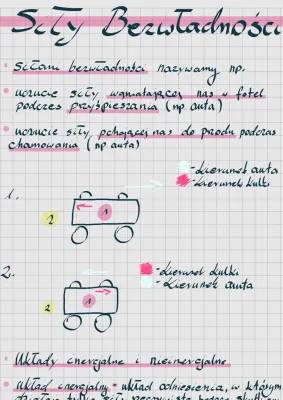 Siły Bezwładności
• siłami bezwładności nazywamy np.
• uczucie siły wgniatającej nas w fotel
podczas przyśpieszania (np auta)
• uczucie siły pchającej nas do przodu podczas
chamowania (np auta)
- kierunek auta
- kierunek kulki
1.
1
2
2.
- kierunek kulki
- kierunek auta
1
2
• Układy inercjalne i nieinercjalne
• układ inercjalny - układ odniesienia, w którym
działają tylko siły rzeczywiste będące skutkiem